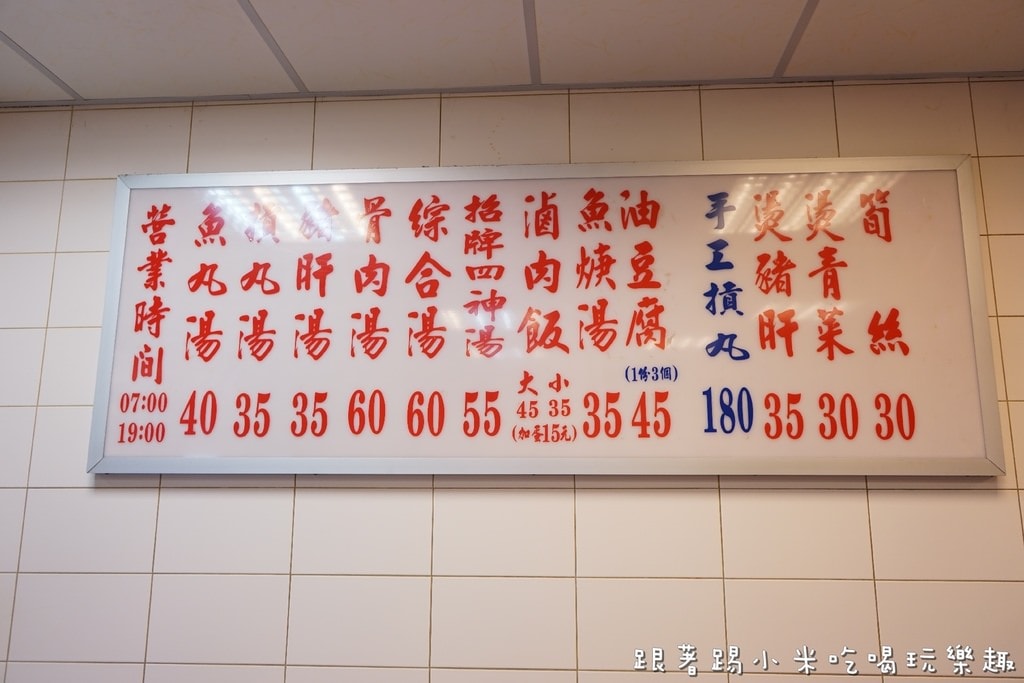 營業時间 07:00 19:00
魚丸湯 40
摃丸湯 35
豬肝湯 35
骨肉湯 60
綜合湯 60
招牌四神湯 55
滷肉飯 大45 小35 (加蛋15元)
魚焿湯 35
油豆腐 (1份3個) 45
手工摃丸 180
燙豬肝 35
燙青菜 30
筍絲 30
跟著踢小米吃喝玩樂趣